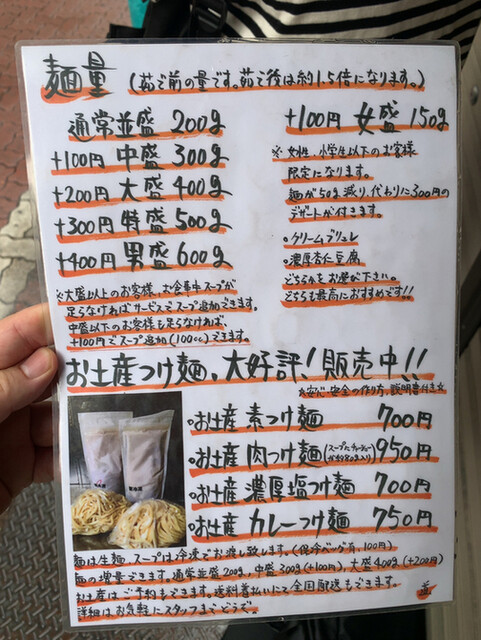 麺量 (茹で前の量です。茹で後は約1.5倍になります。)
通常並盛 200g
+100円 中盛 300g
+200円 大盛 400g
+300円 特盛 500g
+400円 男盛 600g
※大盛以上のお客様、お食事中スープが
足らなければサービスでスープ追加できます。
中盛以下のお客様も足らなければ、
+100円でスープ追加(100cc)できます。
+100円 女盛 150g
※女性、小学生以下のお客様
限定になります。
麺が50g減り、代わりに300円の
デザートが付きます。
・クリームブリュレ
・濃厚杏仁豆腐
どちらかをお選び下さい。
どちらも最高におすすめです!!
お土産つけ麺、大好評!販売中!!
☆安心、安全の作り方、説明書付き☆
・お土産 素つけ麺 700円
・お土産 肉つけ麺(スープにチャーシューが約80g入り) 950円
・お土産 濃厚塩つけ麺 700円
・お土産 カレーつけ麺 750円
麺は生麺、スープは冷凍でお渡し致します。(保冷バッグ有、100円)
麺の増量できます。通常並盛200g、中盛300g(+100円)、大盛400g(+200円)
お土産はご予約もできます。送料着払いにて全国配送もできます。
詳細はお気軽にスタッフまでどうぞ。